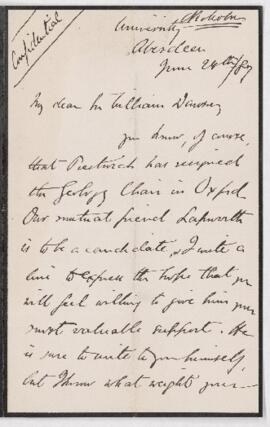 Confidential
University
Aberdeen
June 24th/87
My dear Sir William Dawson
You know, of course,
that Prestwich has resigned
the Geology Chair in Oxford
Our mutual friend Lapworth
is to be a candidate, & I write a
line to express the hope that you
will feel willing to give him your
most valuable support. He
is sure to write to you himself,
but I know what weight your